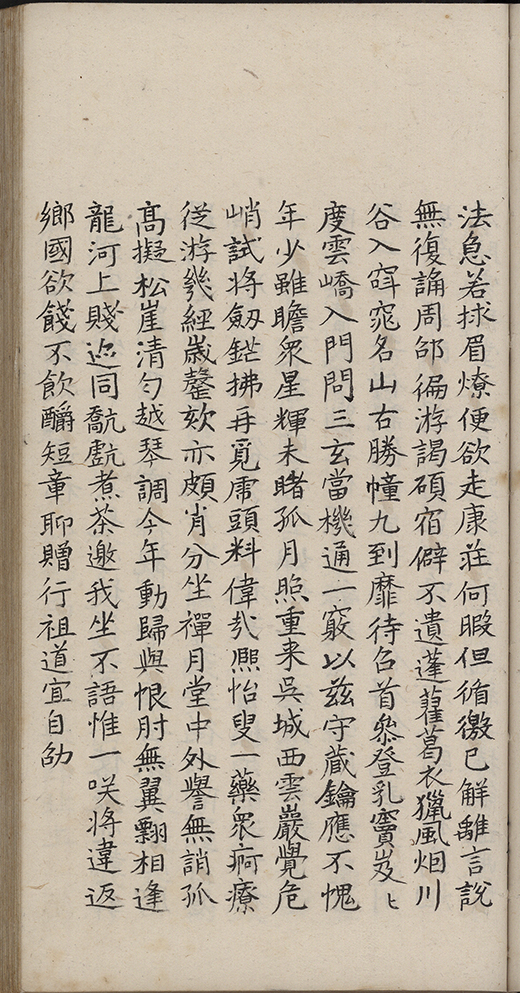 法急若捄眉燎便欲走康莊何暇但循徼已解離言說
無復誦周邵徧游謁碩宿僻不遺蓬藋葛衣獵風烟川
谷入窅窕名山右勝幢九到靡待召首叅登乳竇岌〻
度雲嶠入門問三玄當機通一竅以茲守藏鑰應不愧
年少雖瞻衆星輝未睹孤月照重来吳城西雲巖覺危
峭試将劔鋩拂再覓虎頭料偉㢤熈怡叟一藥衆痾療
從游幾經歲謦欬亦頗肖分坐禪月堂中外譽無誚孤
高擬松崖清勻越琴調今年動歸與恨肘無翼翲相逢
龍河上賤迹同翫戲煮茶邀我坐不語惟一咲将違返
鄉國欲餞不飲釂短章聊贈行祖道宜自劭